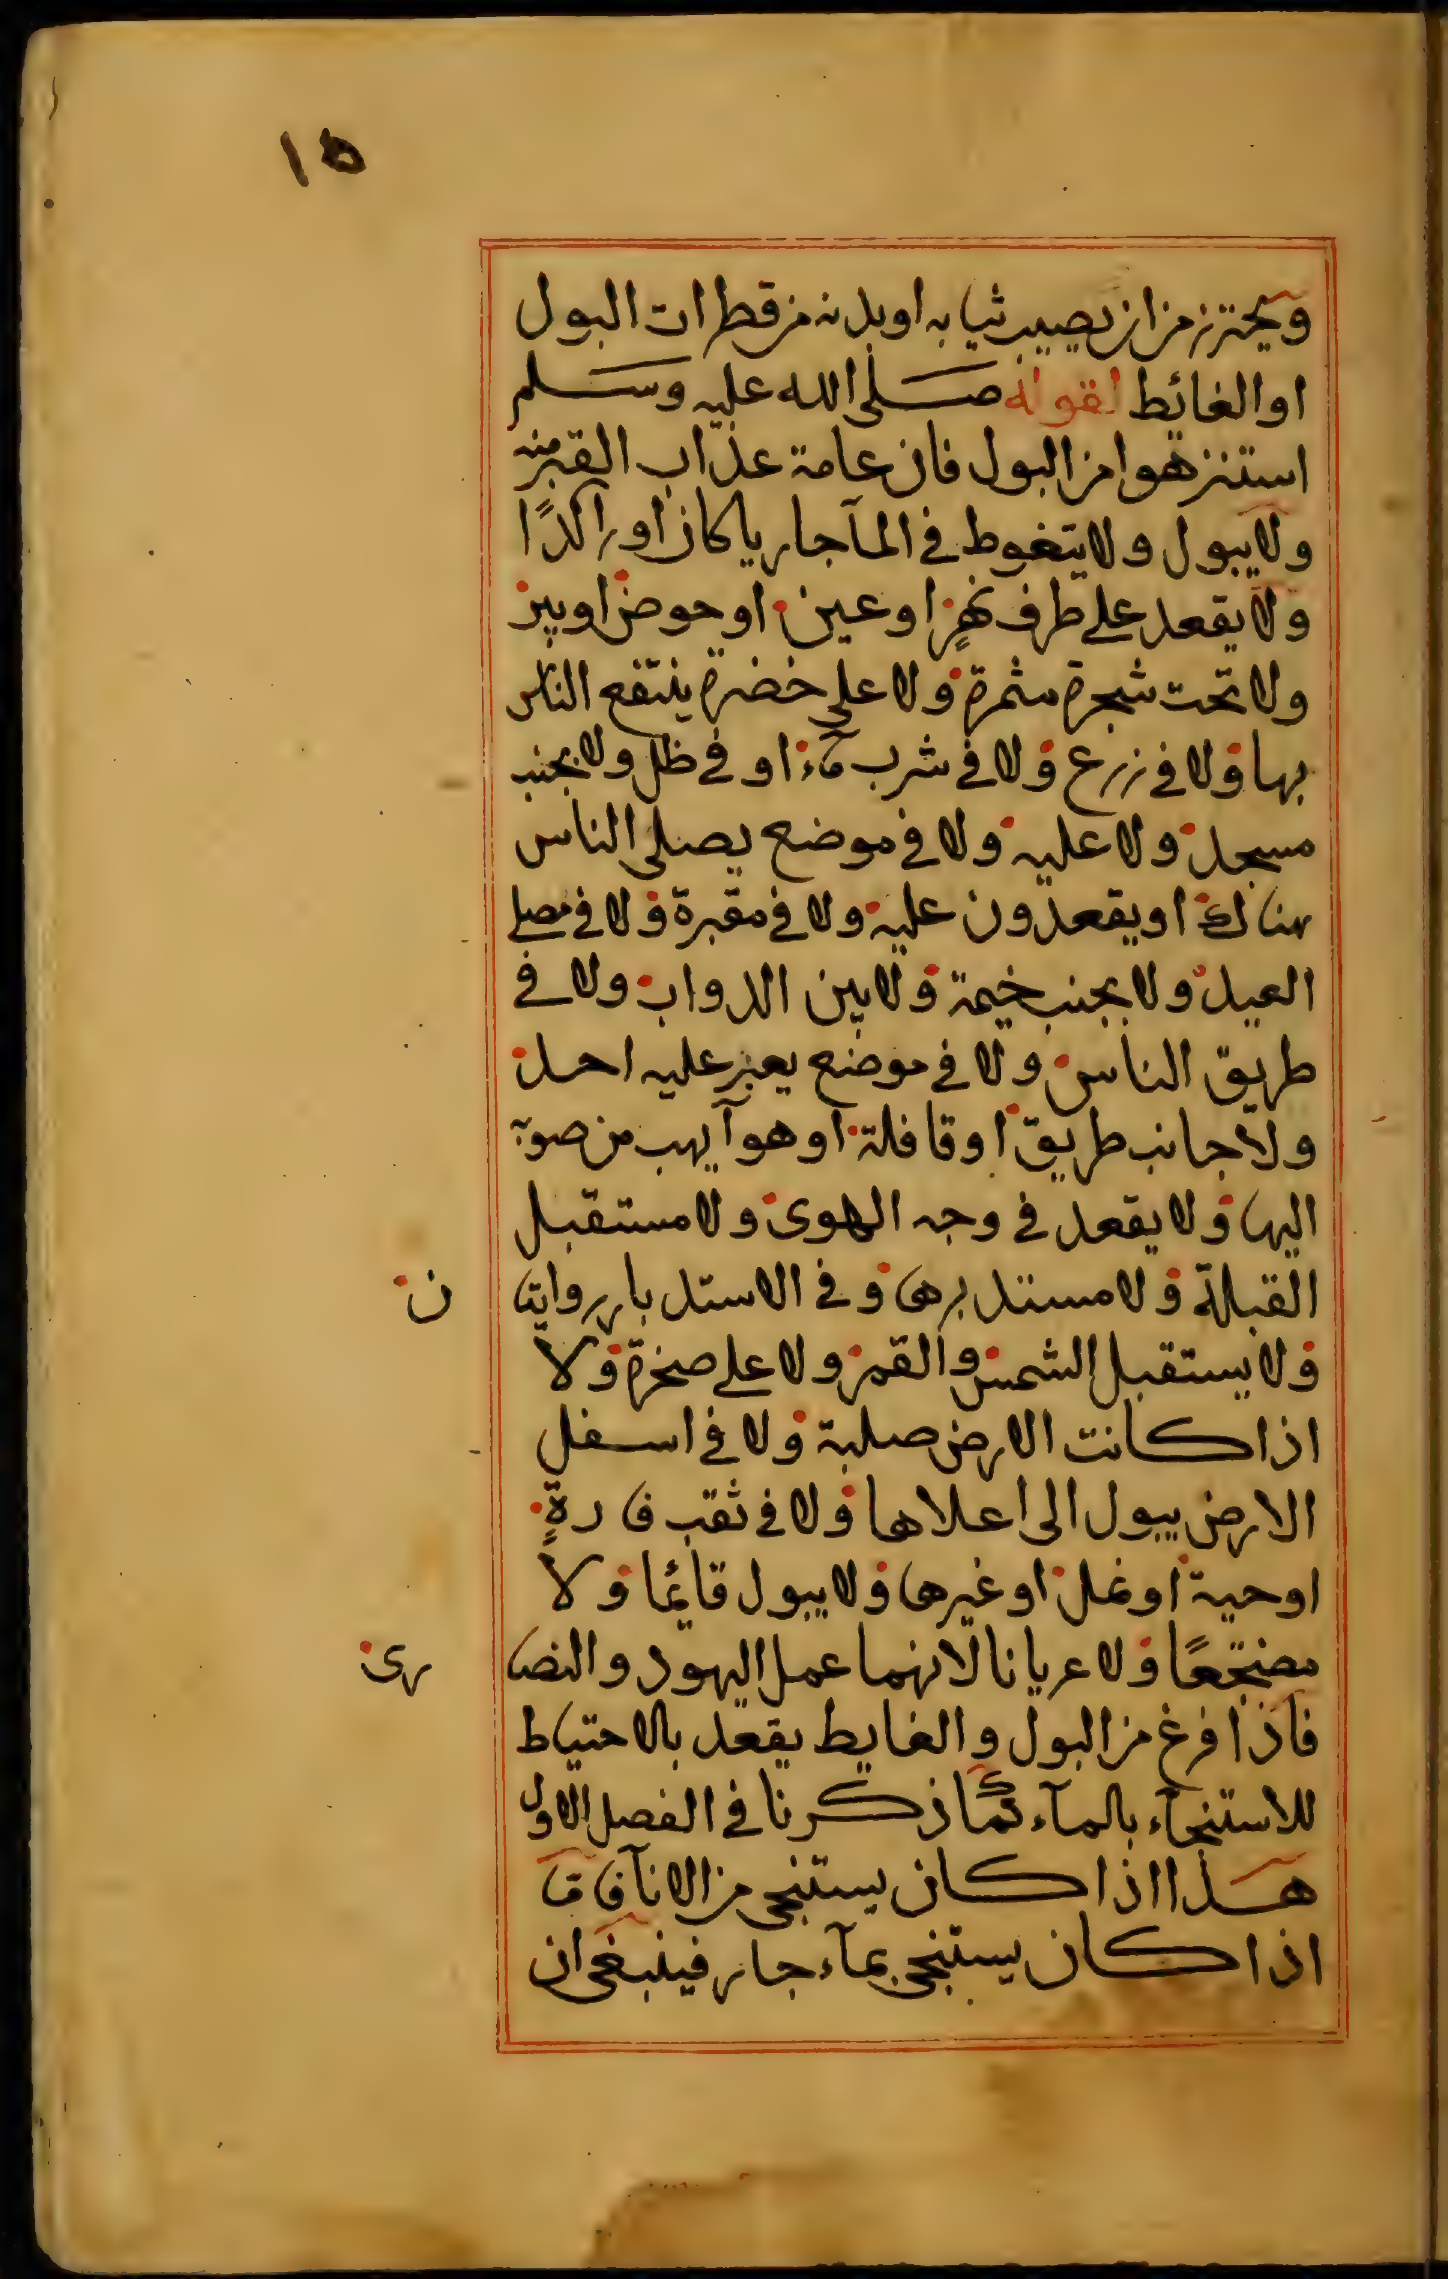 ١٥
ويحترز من ان يصيب ثيابه او بدنه من قطرات البول
او الغائط لقوله صلى الله عليه وسلم
استنزهوا من البول فان عامة عذاب القبر منه
ولا يبول ولا يتغوط فى المآ جاريا كان او راكدًا
ولا يقعد على طرف نهرٍ او عين او حوض او بير
ولا تحت شجرة مثمرة ولا على خضرة ينتفع الناس
بها ولا فى زرع ولا فى شرب مآء او فى ظل ولا بجنب
مسجد ولا عليه ولا فى موضع يصلى الناس
هناك او يقعدون عليه ولا فى مقبرة ولا فى مصلى
العيد ولا بجنب خيمة ولا بين الدواب ولا فى
طريق الناس ولا فى موضع يعبر عليه احد
ولا جانب طريق او قافلة او هوآ يهب من صوبه
اليها ولا يقعد فى وجه الهوى ولا مستقبل
القبلة ولا مستدبرها وفى الاستدبار روايتا
ن
ولا يستقبل الشمس والقمر ولا على صخرة ولا
اذا كانت الارض صلبة ولا فى اسفل
الارض يبول الى اعلاها ولا فى ثقب فارةٍ
او حية او نمل او غيرها ولا يبول قائما ولا
مضتجعًا ولا عريانا لانهما عمل اليهود والنصا
رى
فاذا فرغ من البول والغايط يقعد بالاحتياط
للاستنجآء بالمآء كما ذكرنا فى الفصل الاول
هذا اذا كان يستنجى من الانآ فاما
اذا كان يستنجى بمآء جار فينبغى ان